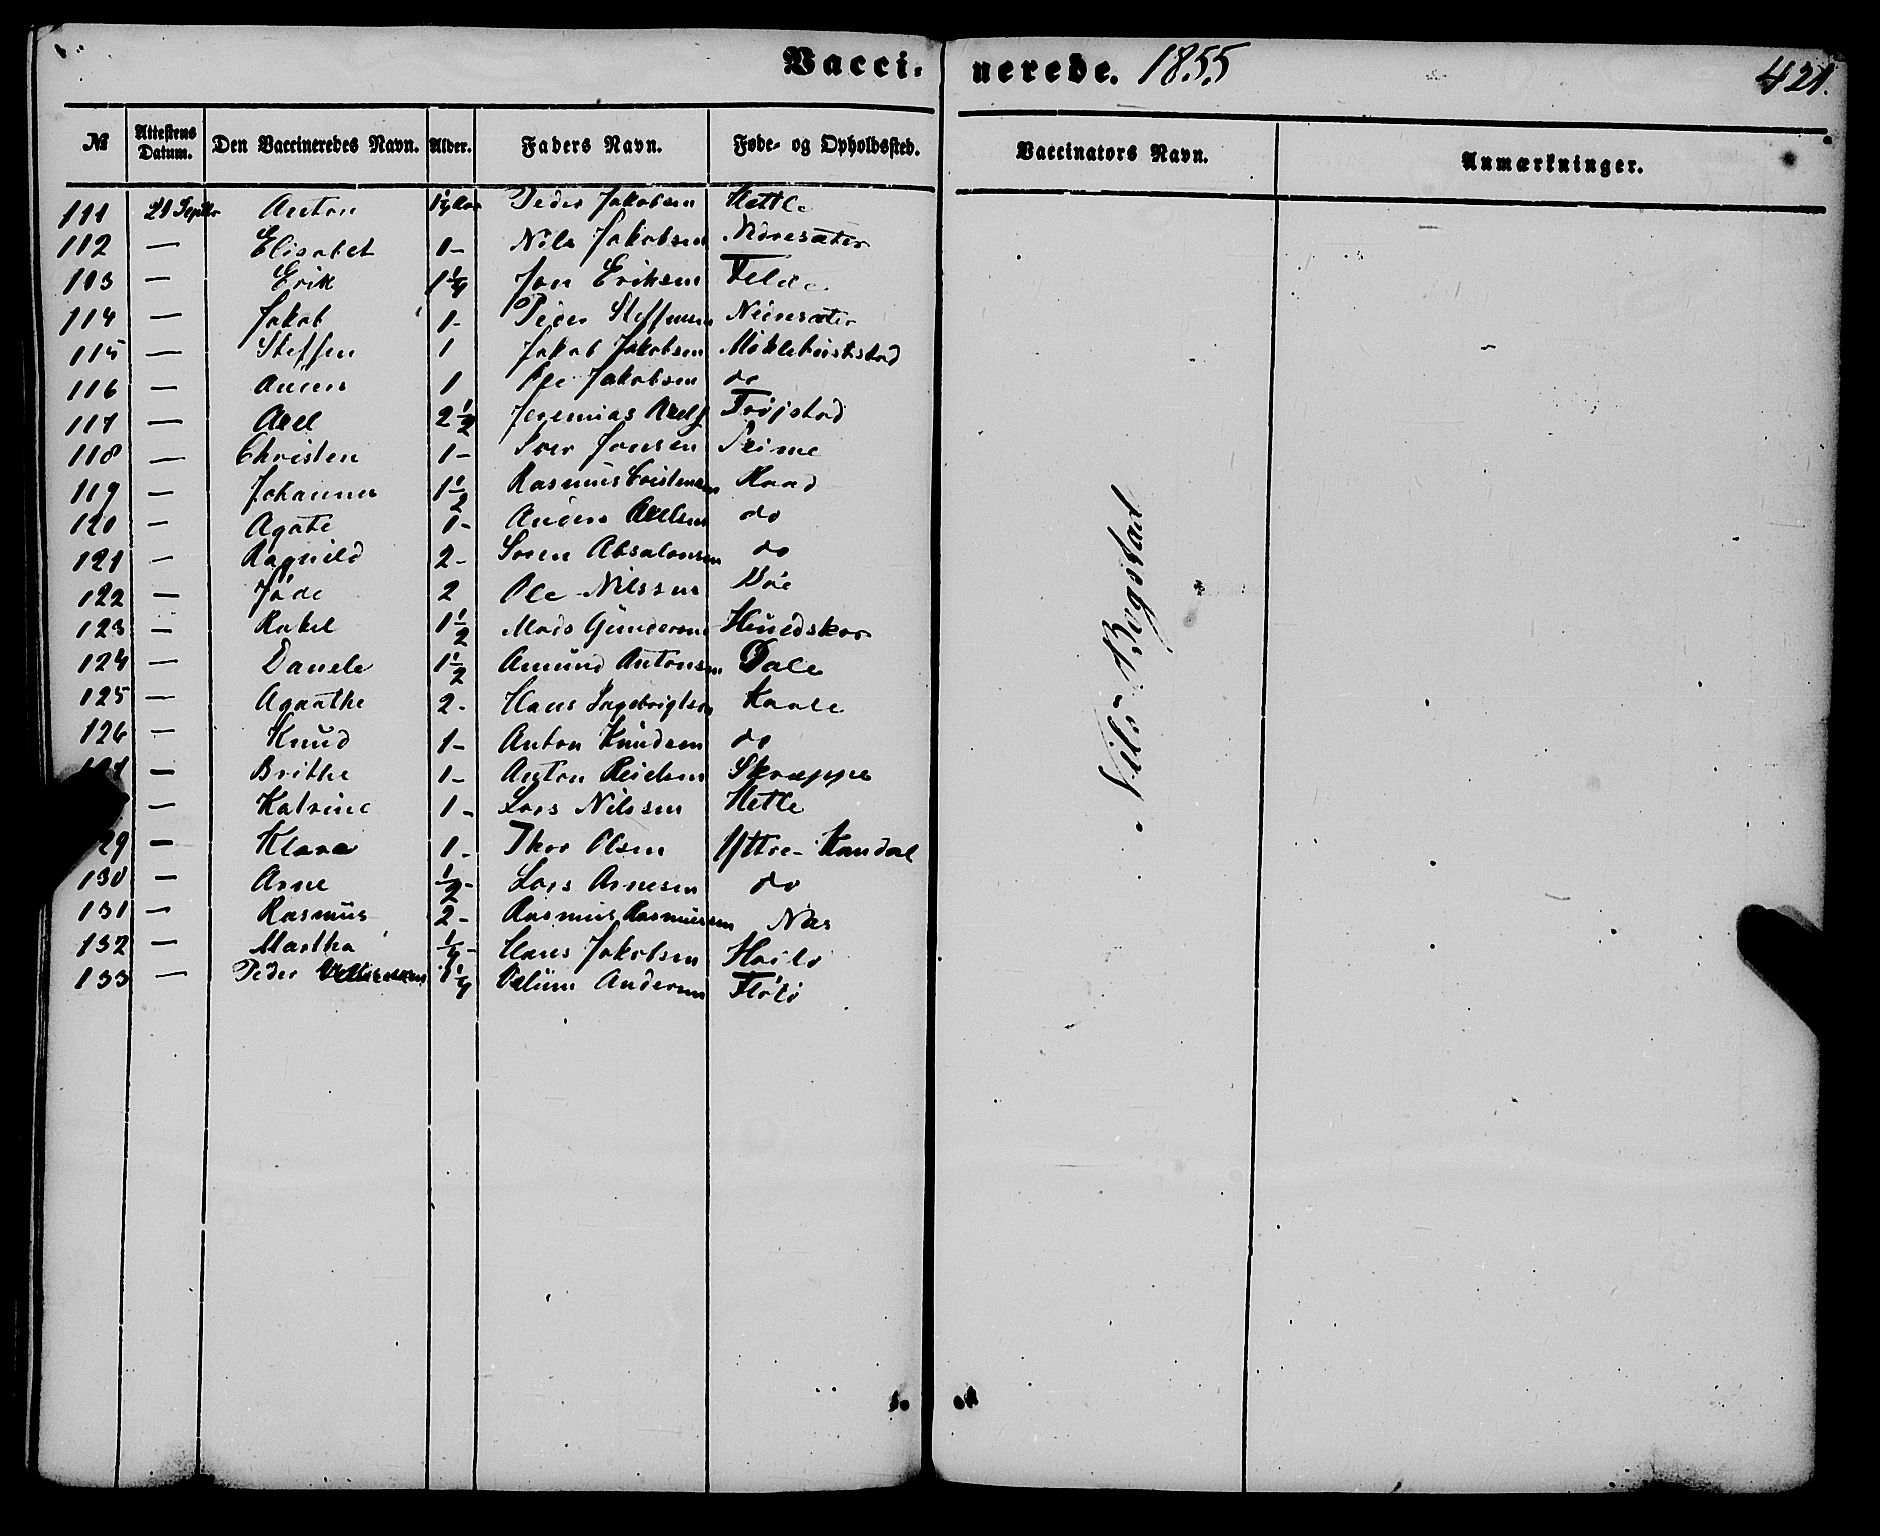 Vacci- nerede. 1855 421.
№ Attestens Datum. Den Vaccineredes Navn. Alder. Faders Navn. Føde- og Opholdssted. Vaccinators Navn. Anmærkninger.
111 21 Septbr Anton Peder Jakobsen Hetle
112 — Elisabet 1- Nils Jakobsen Nedresæter
113 — Erik 1¼ Jon Eriksen Felde
114 — Jakob 1- Peder Steffensen Nedresæter
115 — Steffen 1 Jakob Jakobsen Myklebuststad
116 — Anders 1 Ole Jakobsen do
117 — Axel 2½ Jeremias Axels Frøjstad
118 — Christen 1- Iver Jonsen Seime
119 — Johannes 1½ Rasmus Cristensen
120 — Agate 1- Anders Axelsen do
121 — Ragnild 2- Søren Absalonsen do
122 — 2 Ole Nilssen
123 — Rakel 1½ Mads Gundersen Hundskor
124 — Daniele 1½ Amund Antonsen Dale
125 — Agaathe 2- Hans Ingebrigtsen
126 — Knud 1- Anton Knudsen do
— Brithe 1- Anton Reidsen Skræppe
— Katrine 1- Lars Nilssen Hetle
29 — Klara 1- Thor Olsen Yttre-Kandal
130 — Arne ½- Lars Arnesen do
131 — Rasmus 2- Rasmus Rasmussen Næs
132 — Martha ¼- Hans Jakobsen
133 — Peder 1¼ Andersen Florø
Nils Bogstad